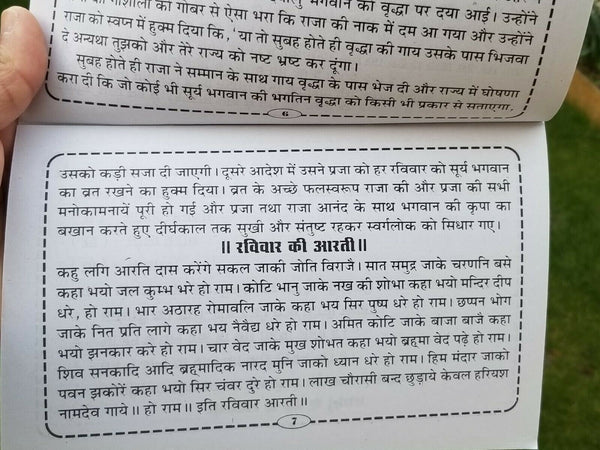 गौशाला को गोबर से ऐसा भरा कि राजा की नाक में दम आ गया और उन्होंने
राजा को स्वप्न में हुक्म दिया कि, 'या तो सुबह होते ही वृद्धा की गाय उसके पास भिजवा
दे अन्यथा तुझको और तेरे राज्य को नष्ट भ्रष्ट कर दूंगा।
सुबह होते ही राजा ने सम्मान के साथ गाय वृद्धा के पास भेज दी और राज्य में घोषणा
करा दी कि जो कोई भी सूर्य भगवान की भगतिन वृद्धा को किसी भी प्रकार से सताएगा,
6
उसको कड़ी सजा दी जाएगी। दूसरे आदेश में उसने प्रजा को हर रविवार को सूर्य भगवान
का व्रत रखने का हुक्म दिया। व्रत के अच्छे फलस्वरूप राजा की और प्रजा की सभी
मनोकामनायें पूरी हो गई और प्रजा तथा राजा आनंद के साथ भगवान की कृपा का
बखान करते हुए दीर्घकाल तक सुखी और संतुष्ट रहकर स्वर्गलोक को सिधार गए।
॥ रविवार की आरती॥
कहु लगि आरति दास करेंगे सकल जाकी जोति विराजै। सात समुद्र जाके चरणनि बसे
कहा भयो जल कुम्भ भरे हो राम। कोटि भानु जाके नख की शोभा कहा भयो मन्दिर दीप
धरे, हो राम। भार अठारह रोमावलि जाके कहा भय सिर पुष्प धरे हो राम। छप्पन भोग
जाके नित प्रति लागे कहा भय नैवैद्य धरे हो राम। अमित कोटि जाके बाजा बाजै कहा
भयो झनकार करे हो राम। चार वेद जाके मुख शोभत कहा भयो ब्रहमा वेद पढ़े हो राम।
शिव सनकादि आदि ब्रहमादिक नारद मुनि जाको ध्यान धरे हो राम। हिम मंदार जाको
पवन झकोरें कहा भयो सिर चंवर दुरे हो राम। लाख चौरासी बन्द छुड़ाये केवल हरियश
नामदेव गाये॥ हो राम॥ इति रविवार आरती॥
7